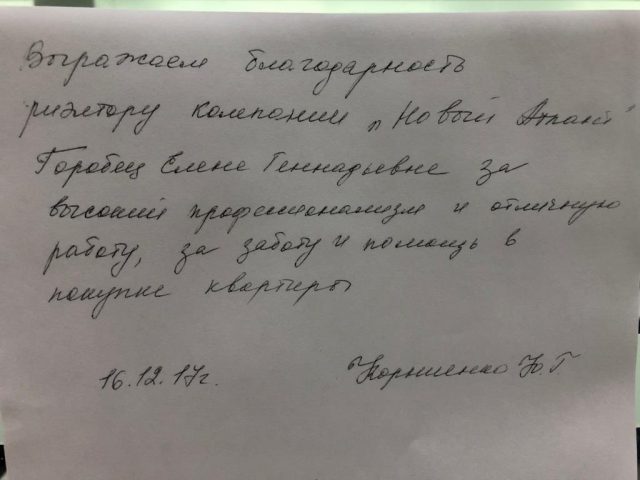 Выражаем благодарность
риэлтору компании „Новый Атлант"
Горобец Елене Геннадьевне за
высокий профессионализм и отличную
работу, за заботу и помощь в
покупке квартиры
16.12.17г. Корниенко Ю.Г